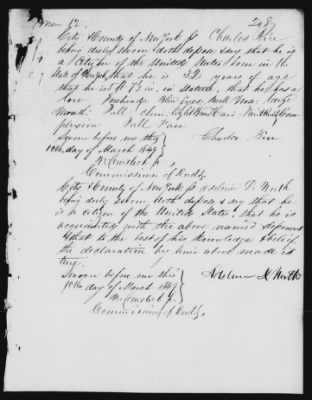 248
City & County of New York ss Charles
being duly sworn doth depose & say that he is
a Citizen of the United States born in the
State of that he is 32 years of age
that he is 5 ft 7½ in. in stature, that he has a
low Forehead, Blue Eyes, Nose, Large
Mouth, Full Chin, Light Hair, Com-
plexion Full Face
Sworn before me this
10th day of March 1869
Commissioner of
City & County of New York ss
being duly sworn doth depose & say that he
is a citizen of the United States, that he is
acquainted with the above named deponent
& that to the best of his Knowledge & belief
the declaration by him above made is
true.
Sworn before me this
10th day of March 1869
Commissioner of